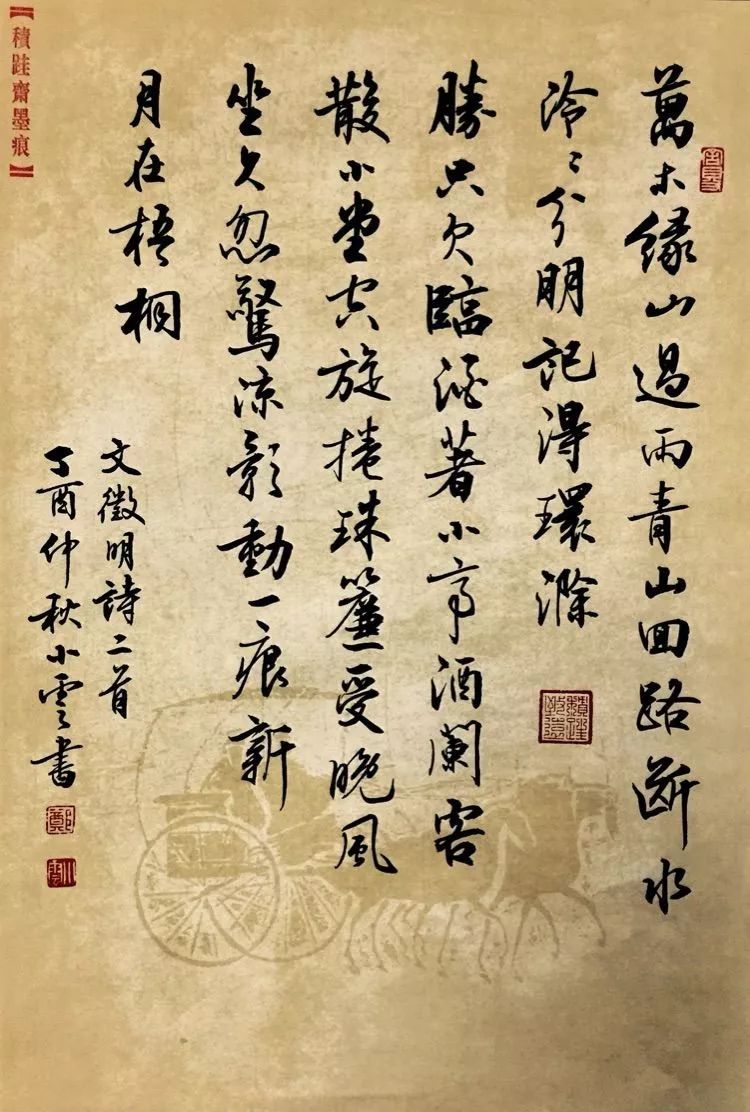 【積跬齋墨痕】
萬木緣山過雨青山回路斷水
泠〻分明記得環滁
勝只欠臨著小亭酒闌客
散小堂空旋捲珠簾受晚風
坐久忽驚涼影動一痕新
月在梧桐
文徵明詩二首
丁酉仲秋小雲書